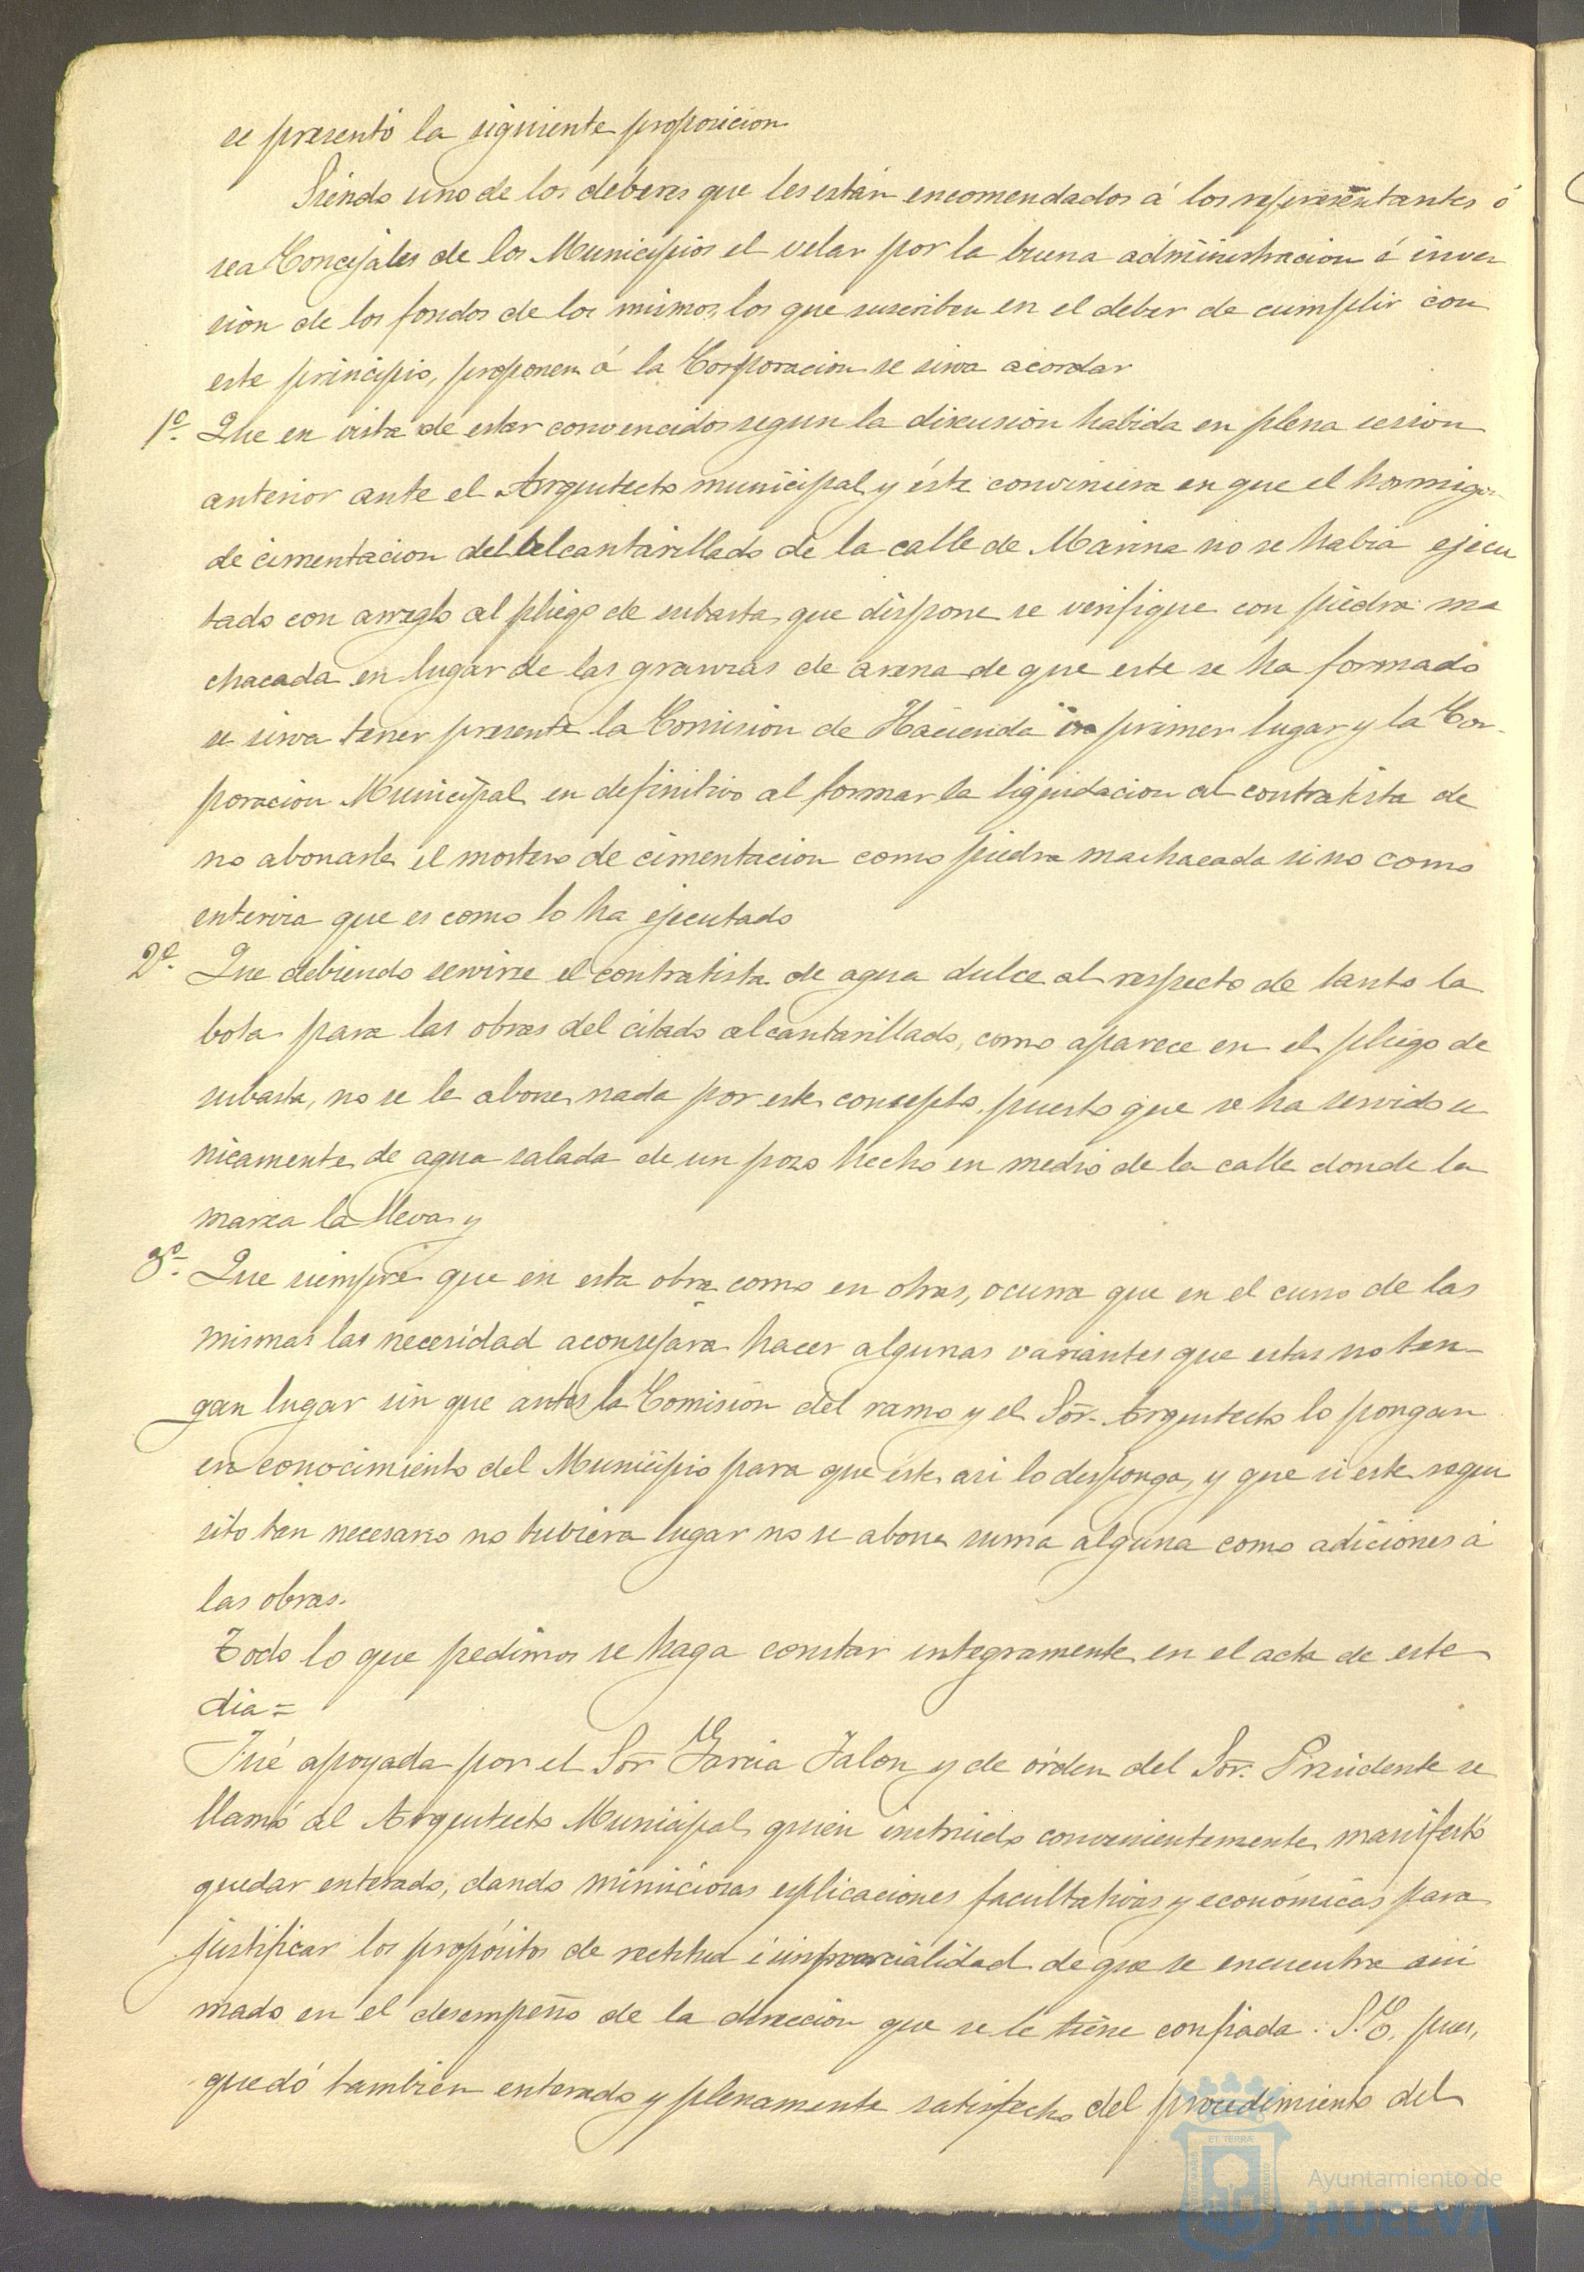 se presentó la siguiente proposicion
Siendo uno de los deberes que les están encomendados á los representantes ó
sea Concejales de los Municipios el velar por la buena administracion é inver
sión de los fondos de los mismos, los que suscriben en el deber de cumplir con
este principio, proponen á la Corporacion se sirva acordar
1º Que en vista de estar convencidos segun la discusión habida en plena sesion
anterior ante el Arquitecto municipal y éste conviniera en que el hormigon
de cimentacion del alcantarillado de la calle de Marina no se habia ejecu
tado con arreglo al pliego de subasta, que dispone se verifique con piedra ma
chacada en lugar de las granzas de arena de que este se ha formado
se sirva tener presente la Comisión de Hacienda en primer lugar y la Cor-
poracion Municipal en definitivo al formar la liquidacion al contratista de
no abonarle el mortero de cimentacion como piedra machacada si no como
que es como lo ha ejecutado
2º Que debiendo servirse el contratista de agua dulce al respecto de tanto la
bota para las obras del citado alcantarillado, como aparece en el pliego de
subasta, no se le abone nada por este concepto, puesto que se ha servido u
nicamente de agua salada de un pozo hecho en medio de la calle donde la
marea la lleva, y
3º Que siempre que en esta obra como en otras, ocurra que en el curso de las
mismas las necesidad aconsejara hacer algunas variantes que estas no ten-
gan lugar sin que antes la Comisión del ramo y el Sor. Arquitecto lo pongan
en conocimiento del Municipio para que éste asi lo desponga, y que si este requi
sito tan necesario no tubiera lugar no se abone suma alguna como adiciones á
las obras.
Todo lo que pedimos se haga constar integramente en el acta de este
dia =
Fué apoyada por el Sor Garcia Jalon y de órden del Sor. Presidente se
llamó al Arquitecto Municipal, quien instruido convenientemente, manifestó
quedar enterado, dando minuciosas esplicaciones facultativas y económicas para
justificar los propósitos de rectitud é imparcialidad de que se encuentra ani
mado en el desempeño de la dirección que se le tiene confiada. S.E. pues,
quedó tambien enterado y plenamente satisfecho del procedimiento del
Ayuntamiento de
HUELVA